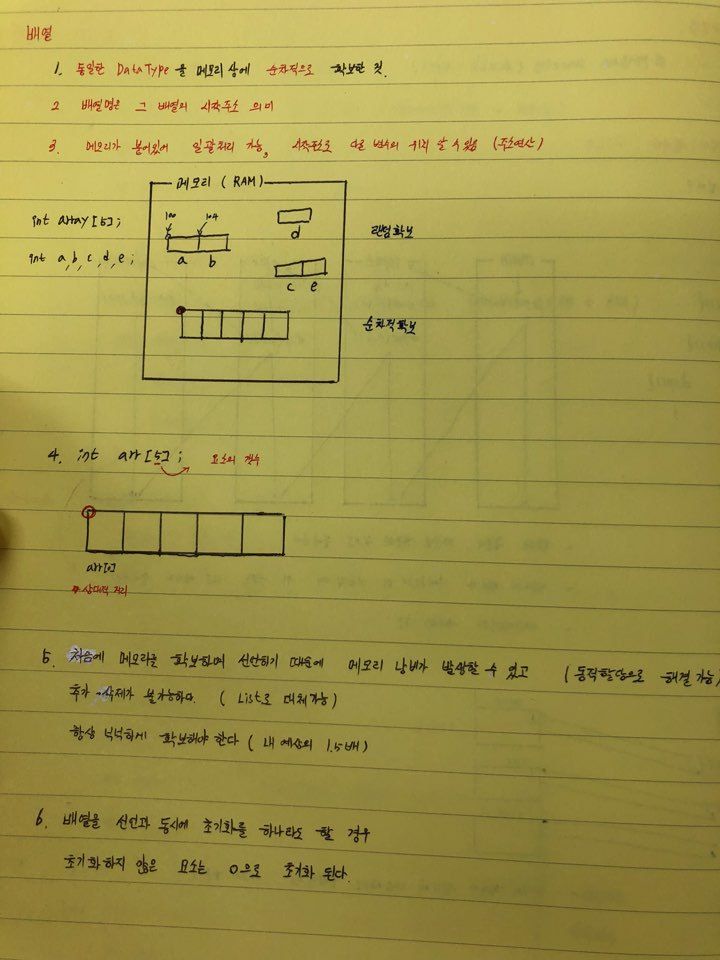 배열
1. 동일한 DataType을 메모리상에 순차적으로 확보한 것.
2 배열명은 그 배열의 시작주소 의미
3. 메모리가 붙어있어 일괄처리 가능, 시작주소로 다른 변수의 위치 알 수 있음 (주소연산)
메모리 (RAM)
int array[5];
100 104
d
랜덤확보
int a, b, c, d, e;
a b
c e
순차적확보
4. int arr[5]; 요소의 갯수
arr[0]
상대적 거리
5. 처음에 메모리를 확보하며 선언하기 때문에 메모리 낭비가 발생할 수 있고 (동적할당으로 해결가능)
추가 삭제가 불가능하다. (List로 대체가능)
항상 넉넉하게 확보해야 한다 (내 예상의 1.5배)
6. 배열을 선언과 동시에 초기화를 하나라도 할 경우
초기화하지 않은 요소는 0으로 초기화 된다.